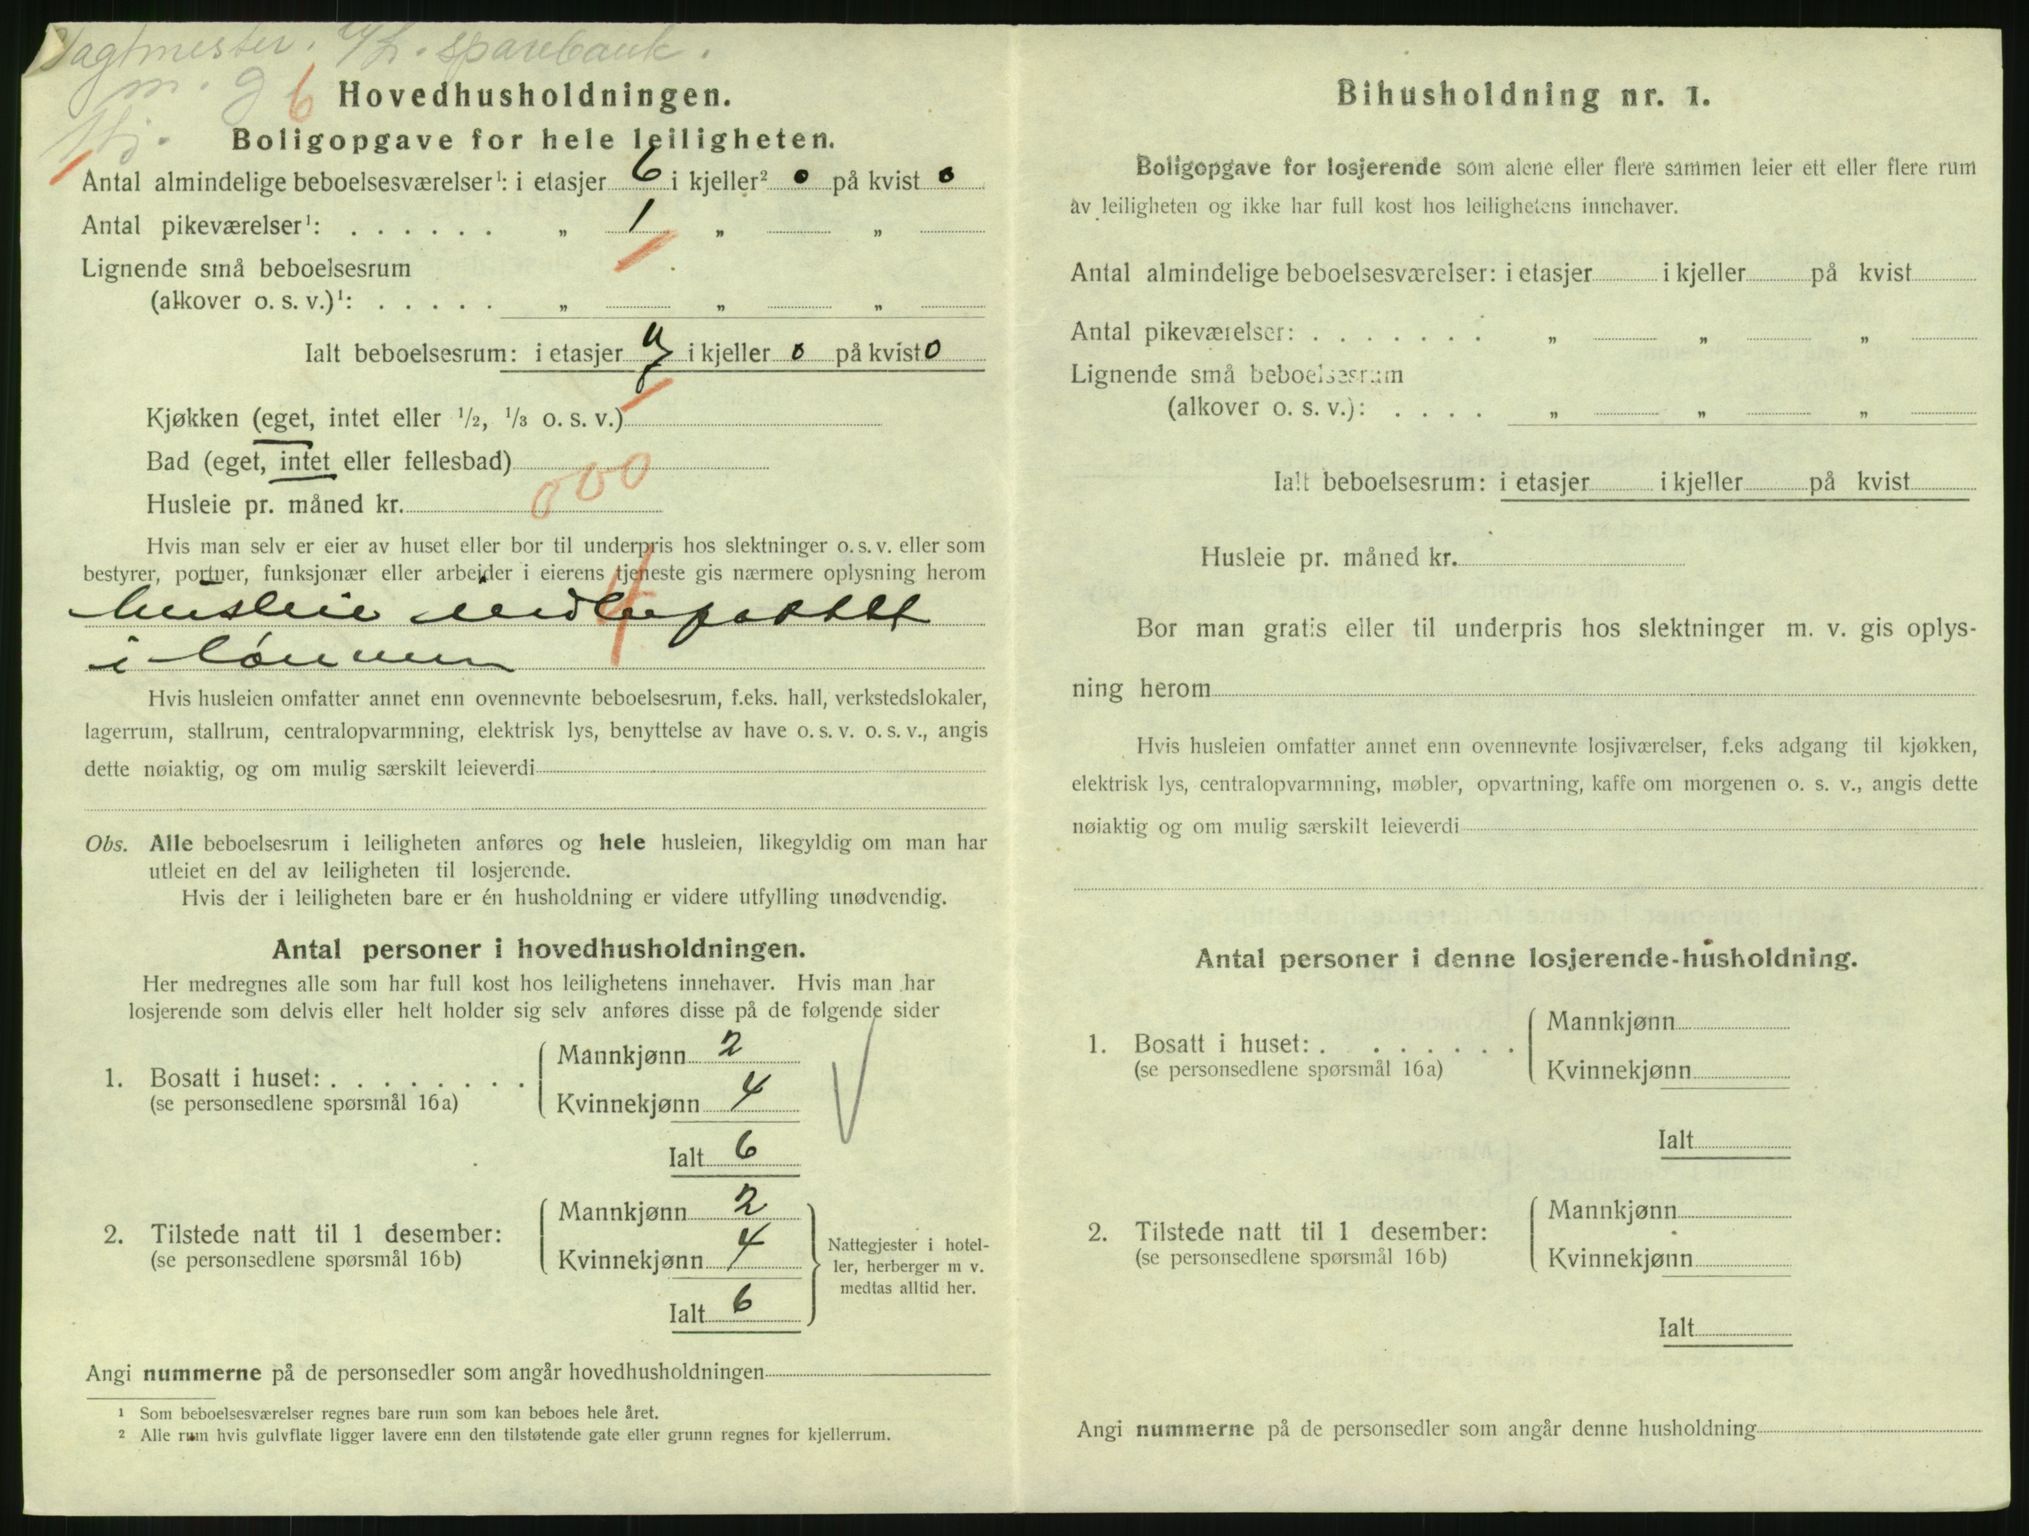 Vagtmester. A/L. sparebank.
m. g 6
Hj.
Hovedhusholdningen.
Boligopgave for hele leiligheten.
Antal almindelige beboelsesværelser¹: i etasjer 6 i kjeller² 0 på kvist 0
Antal pikeværelser¹: . . . . . . „ 1 „ „
Lignende små beboelsesrum
(alkover o. s. v.)¹: . . . . . „ „ „
Ialt beboelsesrum: i etasjer 7 i kjeller 0 på kvist 0
Kjøkken (eget, intet eller 1/2, 1/3 o. s. v.)
Bad (eget, intet eller fellesbad)
Husleie pr. måned kr. 000
Hvis man selv er eier av huset eller bor til underpris hos slektninger o. s. v. eller som
bestyrer, portner, funksjonær eller arbeider i eierens tjeneste gis nærmere oplysning herom
4
husleie
i lønnen
Hvis husleien omfatter annet enn ovennevnte beboelsesrum, f.eks. hall, verkstedslokaler,
lagerrum, stallrum, centralopvarmning, elektrisk lys, benyttelse av have o. s. v. o. s. v., angis
dette nøiaktig, og om mulig særskilt leieverdi
Obs. Alle beboelsesrum i leiligheten anføres og hele husleien, likegyldig om man har
utleiet en del av leiligheten til losjerende.
Hvis der i leiligheten bare er én husholdning er videre utfylling unødvendig.
Antal personer i hovedhusholdningen.
Her medregnes alle som har full kost hos leilighetens innehaver. Hvis man har
losjerende som delvis eller helt holder sig selv anføres disse på de følgende sider
1. Bosatt i huset: . . . . . . . .
(se personsedlene spørsmål 16a)
Mannkjønn 2
Kvinnekjønn 4
Ialt 6
2. Tilstede natt til 1 desember:
(se personsedlene spørsmål 16b)
Mannkjønn 2
Kvinnekjønn 4
Ialt 6
Nattegjester i hotel-
ler, herberger m v.
medtas alltid her.
Angi nummerne på de personsedler som angår hovedhusholdningen
¹ Som beboelsesværelser regnes bare rum som kan beboes hele året.
² Alle rum hvis gulvflate ligger lavere enn den tilstøtende gate eller grunn regnes for kjellerrum.
Bihusholdning nr. 1.
Boligopgave for losjerende som alene eller flere sammen leier ett eller flere rum
av leiligheten og ikke har full kost hos leilighetens innehaver.
Antal almindelige beboelsesværelser: i etasjer i kjeller på kvist
Antal pikeværelser: . . . . . . . „ „ „
Lignende små beboelsesrum
(alkover o. s. v.): . . . . „ „ „
Ialt beboelsesrum: i etasjer i kjeller på kvist
Husleie pr. måned kr.
Bor man gratis eller til underpris hos slektninger m. v. gis oplys-
ning herom
Hvis husleien omfatter annet enn ovennevnte losjiværelser, f.eks adgang til kjøkken,
elektrisk lys, centralopvarmning, møbler, opvartning, kaffe om morgenen o. s. v., angis dette
nøiaktig og om mulig særskilt leieverdi
Antal personer i denne losjerende-husholdning.
1. Bosatt i huset: . . . . . . .
(se personsedlene spørsmål 16a)
Mannkjønn
Kvinnekjønn
Ialt
2. Tilstede natt til 1 desember:
(se personsedlene spørsmål 16b)
Mannkjønn
Kvinnekjønn
Ialt
Angi nummerne på de personsedler som angår denne husholdning